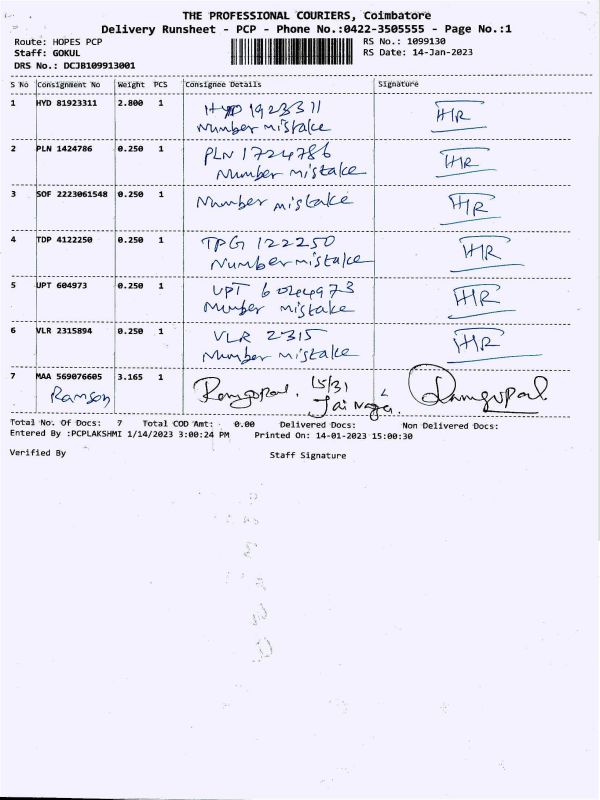 THE PROFESSIONAL COURIERS, Coimbatore
Delivery Runsheet - PCP - Phone No.:0422-3505555 - Page No.:1
Route: HOPES PCP RS No.: 1099130
Staff: GOKUL RS Date: 14-Jan-2023
DRS No.: DCJB109913001
S No Consignment No Weight PCS Consignee Details Signature
1 HYD 81923311 2.800 1 HYD 1923311
Number mistake
2 PLN 1424786 0.250 1 PLN 1724786
Number mistake
3 SOF 2223061548 0.250 1 Number mistake
4 TDP 4122250 0.250 1 TPG 122250
Number mistake
5 UPT 604973 0.250 1 UPT 6044973
Number mistake
6 VLR 2315894 0.250 1 VLR 2315
Number mistake
7 MAA 569076605 3.165 1 Ramgopal. 15/31 Ramgopal
Ramson Jai Nagar.
Total No. Of Docs: 7 Total COD Amt: 0.00 Delivered Docs: Non Delivered Docs:
Entered By :PCPLAKSHMI 1/14/2023 3:00:24 PM Printed On: 14-01-2023 15:00:30
Verified By Staff Signature